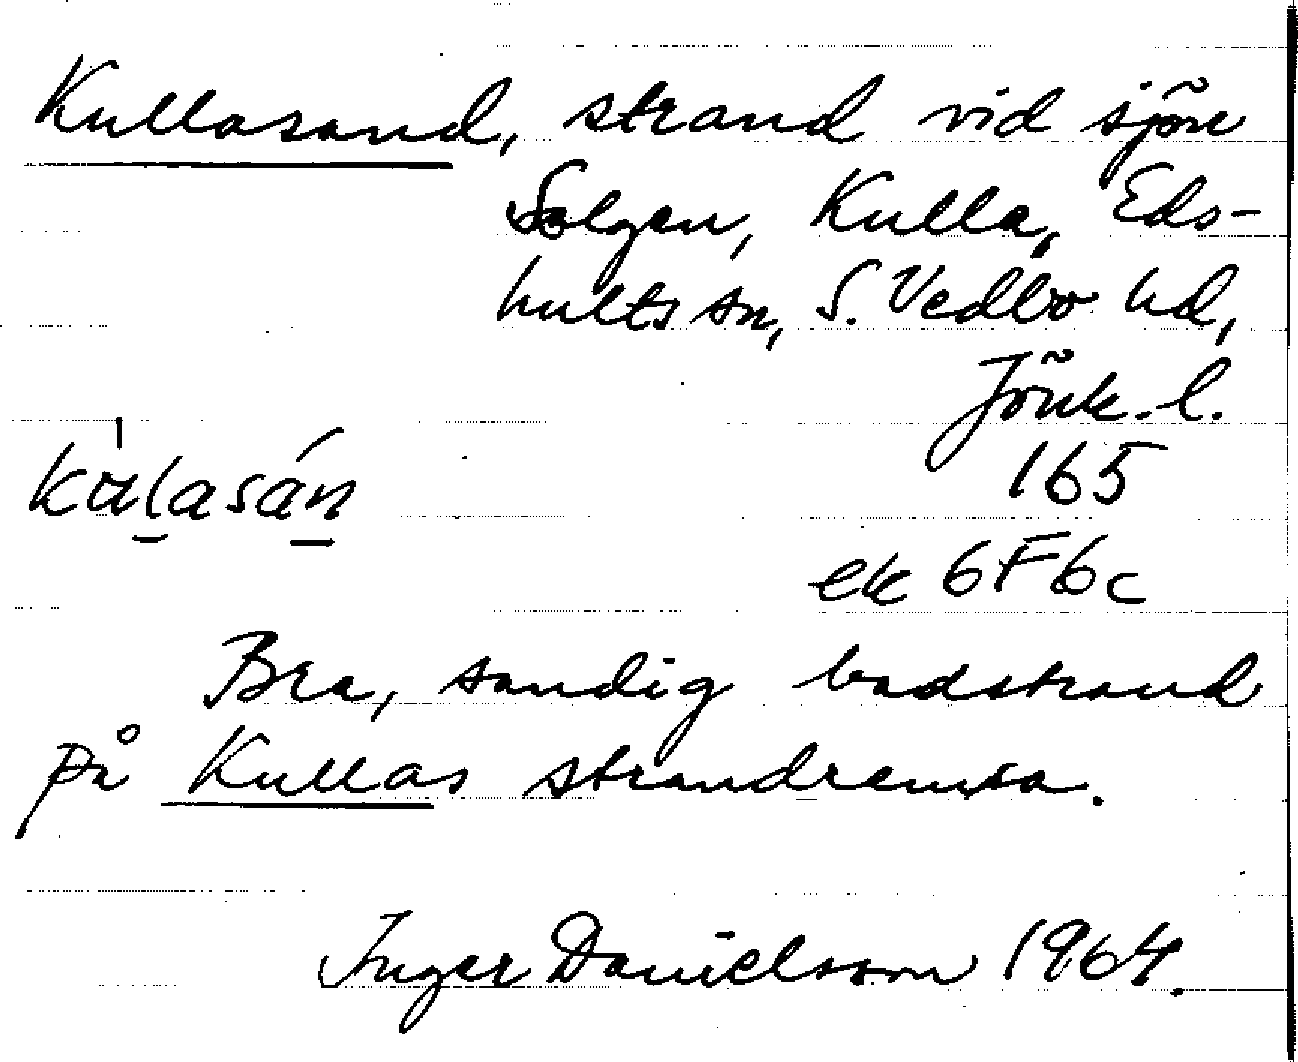 Kullasand, strand vid sjön
Solgen, Kulla, Eds-
hults sn, S. Vedbo hd,
Jönk. l.
165
kàlasán
ek 6F6c
Bra, sandig badstrand
på Kullas strandremsa.
Inger Danielsson 1964.